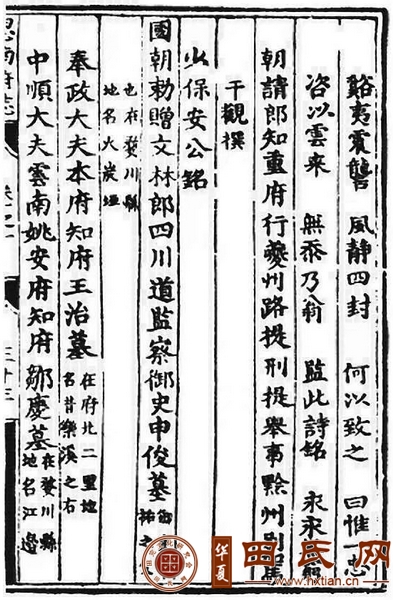 谿夷震讋 風靜四封 何以致之 曰惟一忠
咨以雲来 無忝乃翁 監此詩銘 永永
朝請郎知重府行夔州路提刑提舉事黔州別
干觀撰
少保安公銘
國朝勅贈文林郎四川道監察御史申俊墓
祐之
也在婺川縣
地名火炭埡
奉政大夫本府知府王治墓
在府北二里地
名昔樂溪之右
中順大夫雲南姚安府知府鄒慶墓
在婺川縣
地名江邊
思南府志
卷之一
三十三
华夏
田氏网
www.hxtian.cn